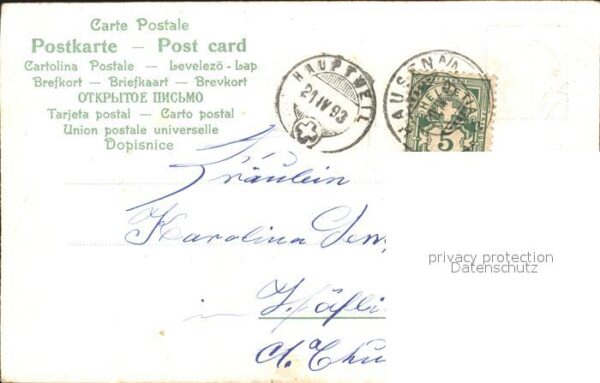 Carte Postale
Postkarte — Post card
Cartolina Postale — Levelező - Lap
Brefkort — Briefkaart — Brevkort
ОТКРЫТОЕ ПИСЬМО
Tarjeta postal — Carto postal
Union postale universelle
Dopisnice
HAUPTWEIL
21 IV 93
HAUSEN A/A
HELVETIA
5
Fräulein
Karolina
privacy protection
Datenschutz
in